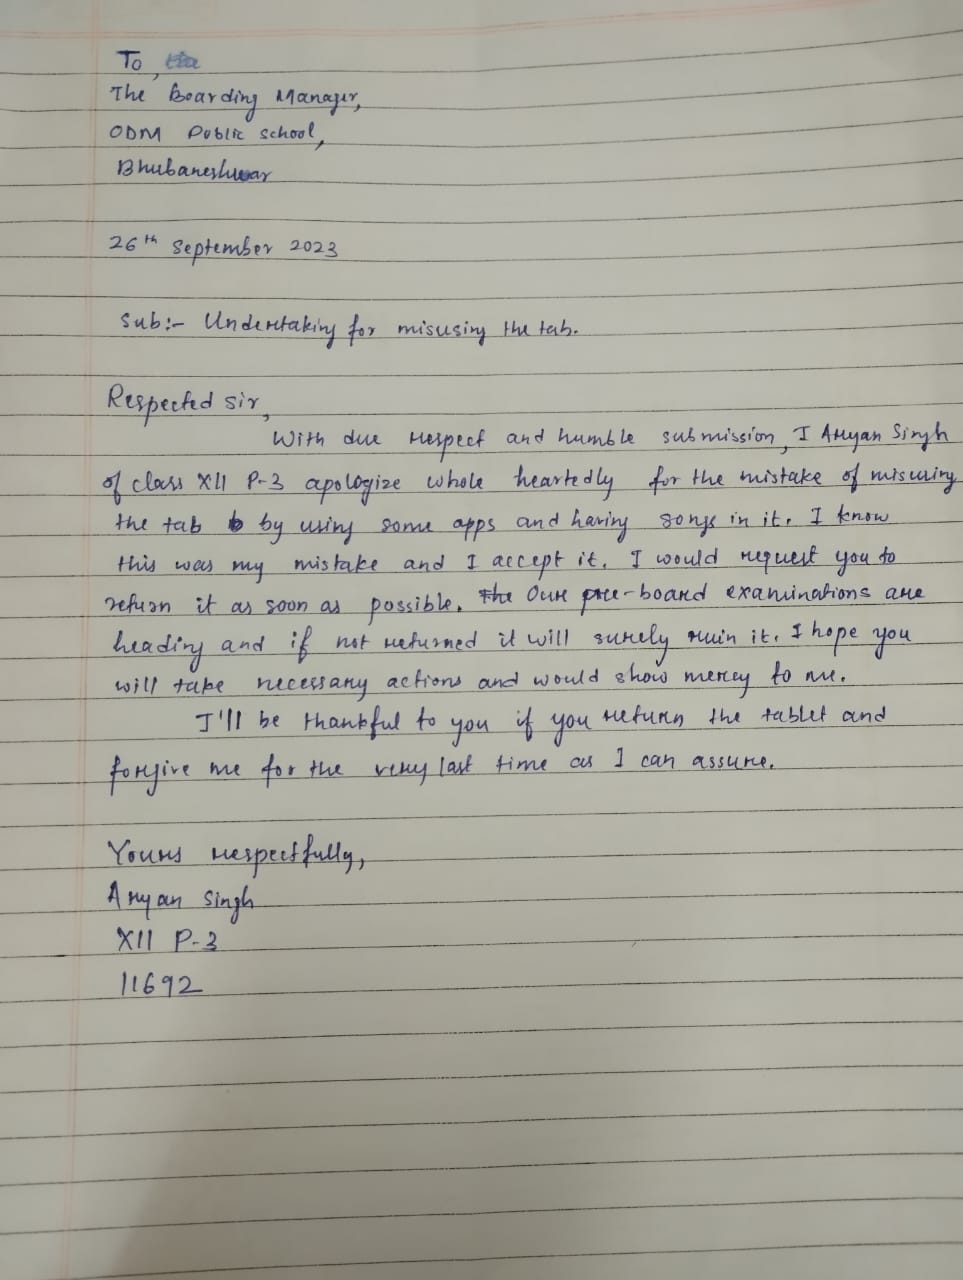 To,
The Boarding Manager,
ODM Public School,
Bhubaneshwar
26th September 2023
Sub:- Undertaking for misusing the tab.
Respected sir,
With due respect and humble submission, I Aryan Singh
of class XII P-3 apologize whole heartedly for the mistake of misusing
the tab by using some apps and having songs in it. I know
this was my mistake and I accept it. I would request you to
return it as soon as possible. Our pre-board examinations are
heading and if not returned it will surely ruin it. I hope you
will take necessary actions and would show mercy to me.
I'll be thankful to you if you return the tablet and
forgive me for the very last time as I can assure.
Yours respectfully,
Aryan Singh
XII P-3
11692